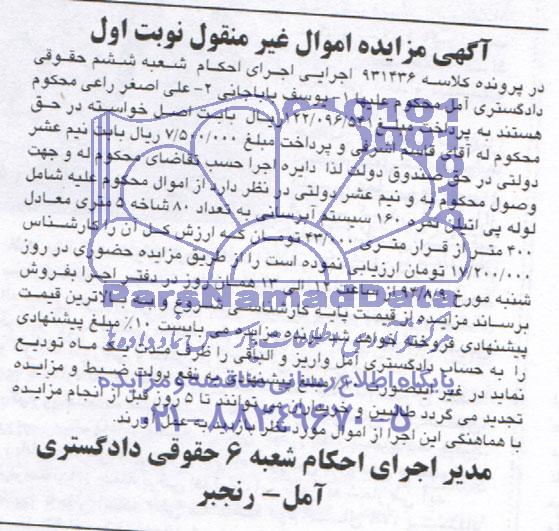 آگهی مزایده اموال غیر منقول نوبت اول
در پرونده کلاسه ۹۳۱۴۳۶ اجرایی اجرای احکام شعبه ششم حقوقی
دادگستری آمل محکوم علیها ۱- یوسف باباجانی ۲- علی اصغر راعی محکوم
هستند به پرداخت مبلغ ریال بابت اصل خواسته در حق
محکوم له آقای قاسم اشرفی و پرداخت مبلغ ۷/۵۰۰/۰۰۰ ریال بابت نیم عشر
دولتی در حق صندوق دولت لذا دایره اجرا حسب تقاضای محکوم له و جهت
وصول محکوم به و نیم عشر دولتی در نظر دارد از اموال محکوم علیه شامل
لوله پی اتیلن نمره ۱۶۰ سیستم آبرسانی به تعداد ۸۰ شاخه ۵ متری معادل
۴۰۰ متر از قرار متری ۴۳/۰۰۰ تومان که ارزش کل آن را کارشناس
۱۷/۲۰۰/۰۰۰ تومان ارزیابی نموده است را از طریق مزایده حضوری در روز
شنبه مورخ از ساعت الی ۱۲ همان روز در دفتر اجرا بفروش
برساند مزایده از قیمت پایه کارشناسی شروع و به بالاترین قیمت
پیشنهادی فروخته خواهد شد برنده مزایده می بایست ۱۰٪ مبلغ پیشنهادی
را به حساب دادگستری آمل واریز و الباقی را ظرف مدت یک ماه تودیع
نماید در غیر اینصورت مبلغ پیشنهادی به نفع دولت ضبط و مزایده
تجدید می گردد طالبین و خریداران می توانند تا ۵ روز قبل از انجام مزایده
با هماهنگی این اجرا از اموال مورد نظر بازدید به عمل آورند
مدیر اجرای احکام شعبه ۶ حقوقی دادگستری
آمل- رنجبر
ParsNamadData
پایگاه اطلاع رسانی مناقصه و مزایده
۰۲۱-۸۸۲۴۹۶۷۰-۵